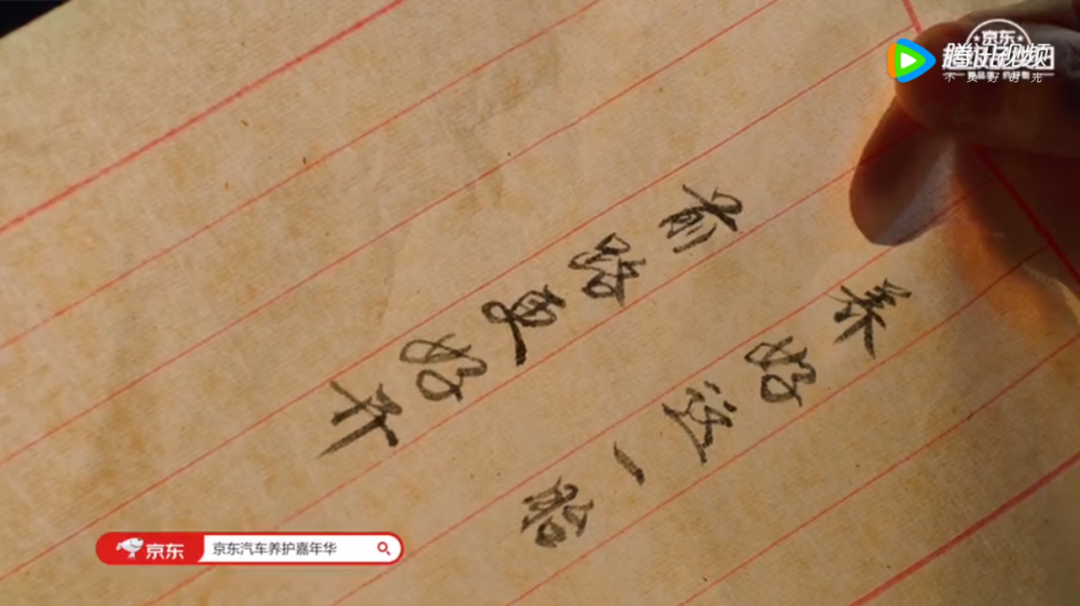 腾讯视频
不负好时光
京东
养好这一胎
前路更好开
京东
京东汽车养护嘉年华